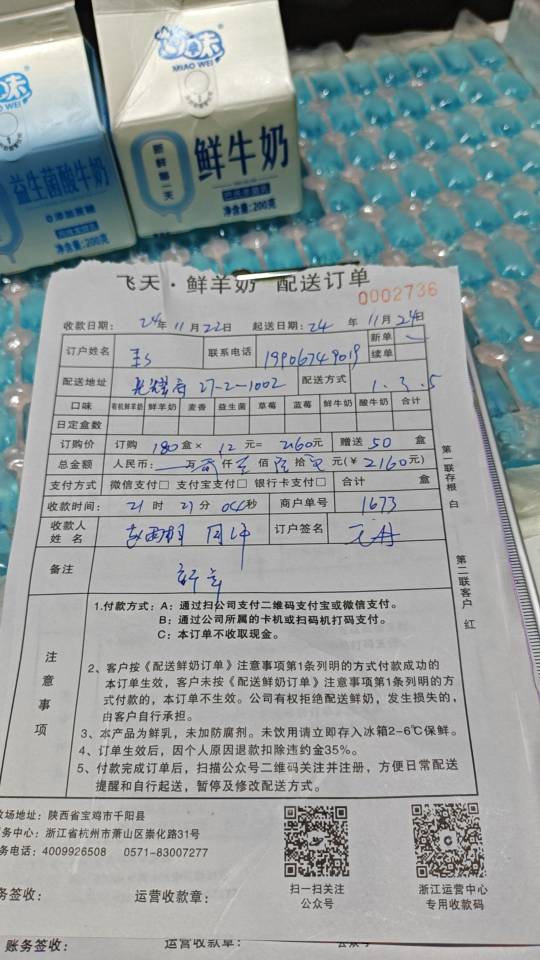 味
MIAO WEI
O WEI
益生菌酸牛奶
0添加蔗糖
净含量:200克
新鲜每一天
鲜牛奶
净含量:200克
飞天·鲜羊奶 配送订单
0002736
收款日期: 24年 11月 22日 起送日期: 24年 11月 24日
订户姓名 联系电话 19906749019 新单 续单
配送地址 27-2-1002 配送方式 1.3.5
口味 有机鲜羊奶 鲜羊奶 麦香 益生菌 草莓 蓝莓 鲜牛奶 酸牛奶 合计
日定盒数
订购价 订购 180 盒× 12 元= 2160元 赠送 50 盒
总金额 人民币: 万 仟 佰 拾 元(¥2160元)
支付方式 微信支付□ 支付宝支付□ 银行卡支付□ 合计 盒
收款时间: 21 时 21 分 秒 商户单号 1673
收款人姓名 订户签名
备注
第一联存根 白
第二联客户 红
注意事项
1.付款方式: A: 通过扫公司支付二维码支付宝或微信支付。
B: 通过公司所属的卡机或扫码机打码支付。
C: 本订单不收取现金。
2、客户按《配送鲜奶订单》注意事项第1条列明的方式付款成功的
本订单生效,客户未按《配送鲜奶订单》注意事项第1条列明的方
式付款的,本订单不生效。公司有权拒绝配送鲜奶,发生损失的,
由客户自行承担。
3、本产品为鲜乳,未加防腐剂。未饮用请立即存入冰箱2-6℃保鲜。
4、订单生效后,因个人原因退款扣除违约金35%。
5、付款完成订单后,扫描公众号二维码关注并注册,方便日常配送
提醒和自行起送,暂停及修改配送方式。
牧场地址: 陕西省宝鸡市千阳县
务中心: 浙江省杭州市萧山区崇化路31号
务电话: 4009926508 0571-83007277
扫一扫关注
公众号
浙江运营中心
专用收款码
务签收: 运营收款章:
账务签收: 运营收款章: